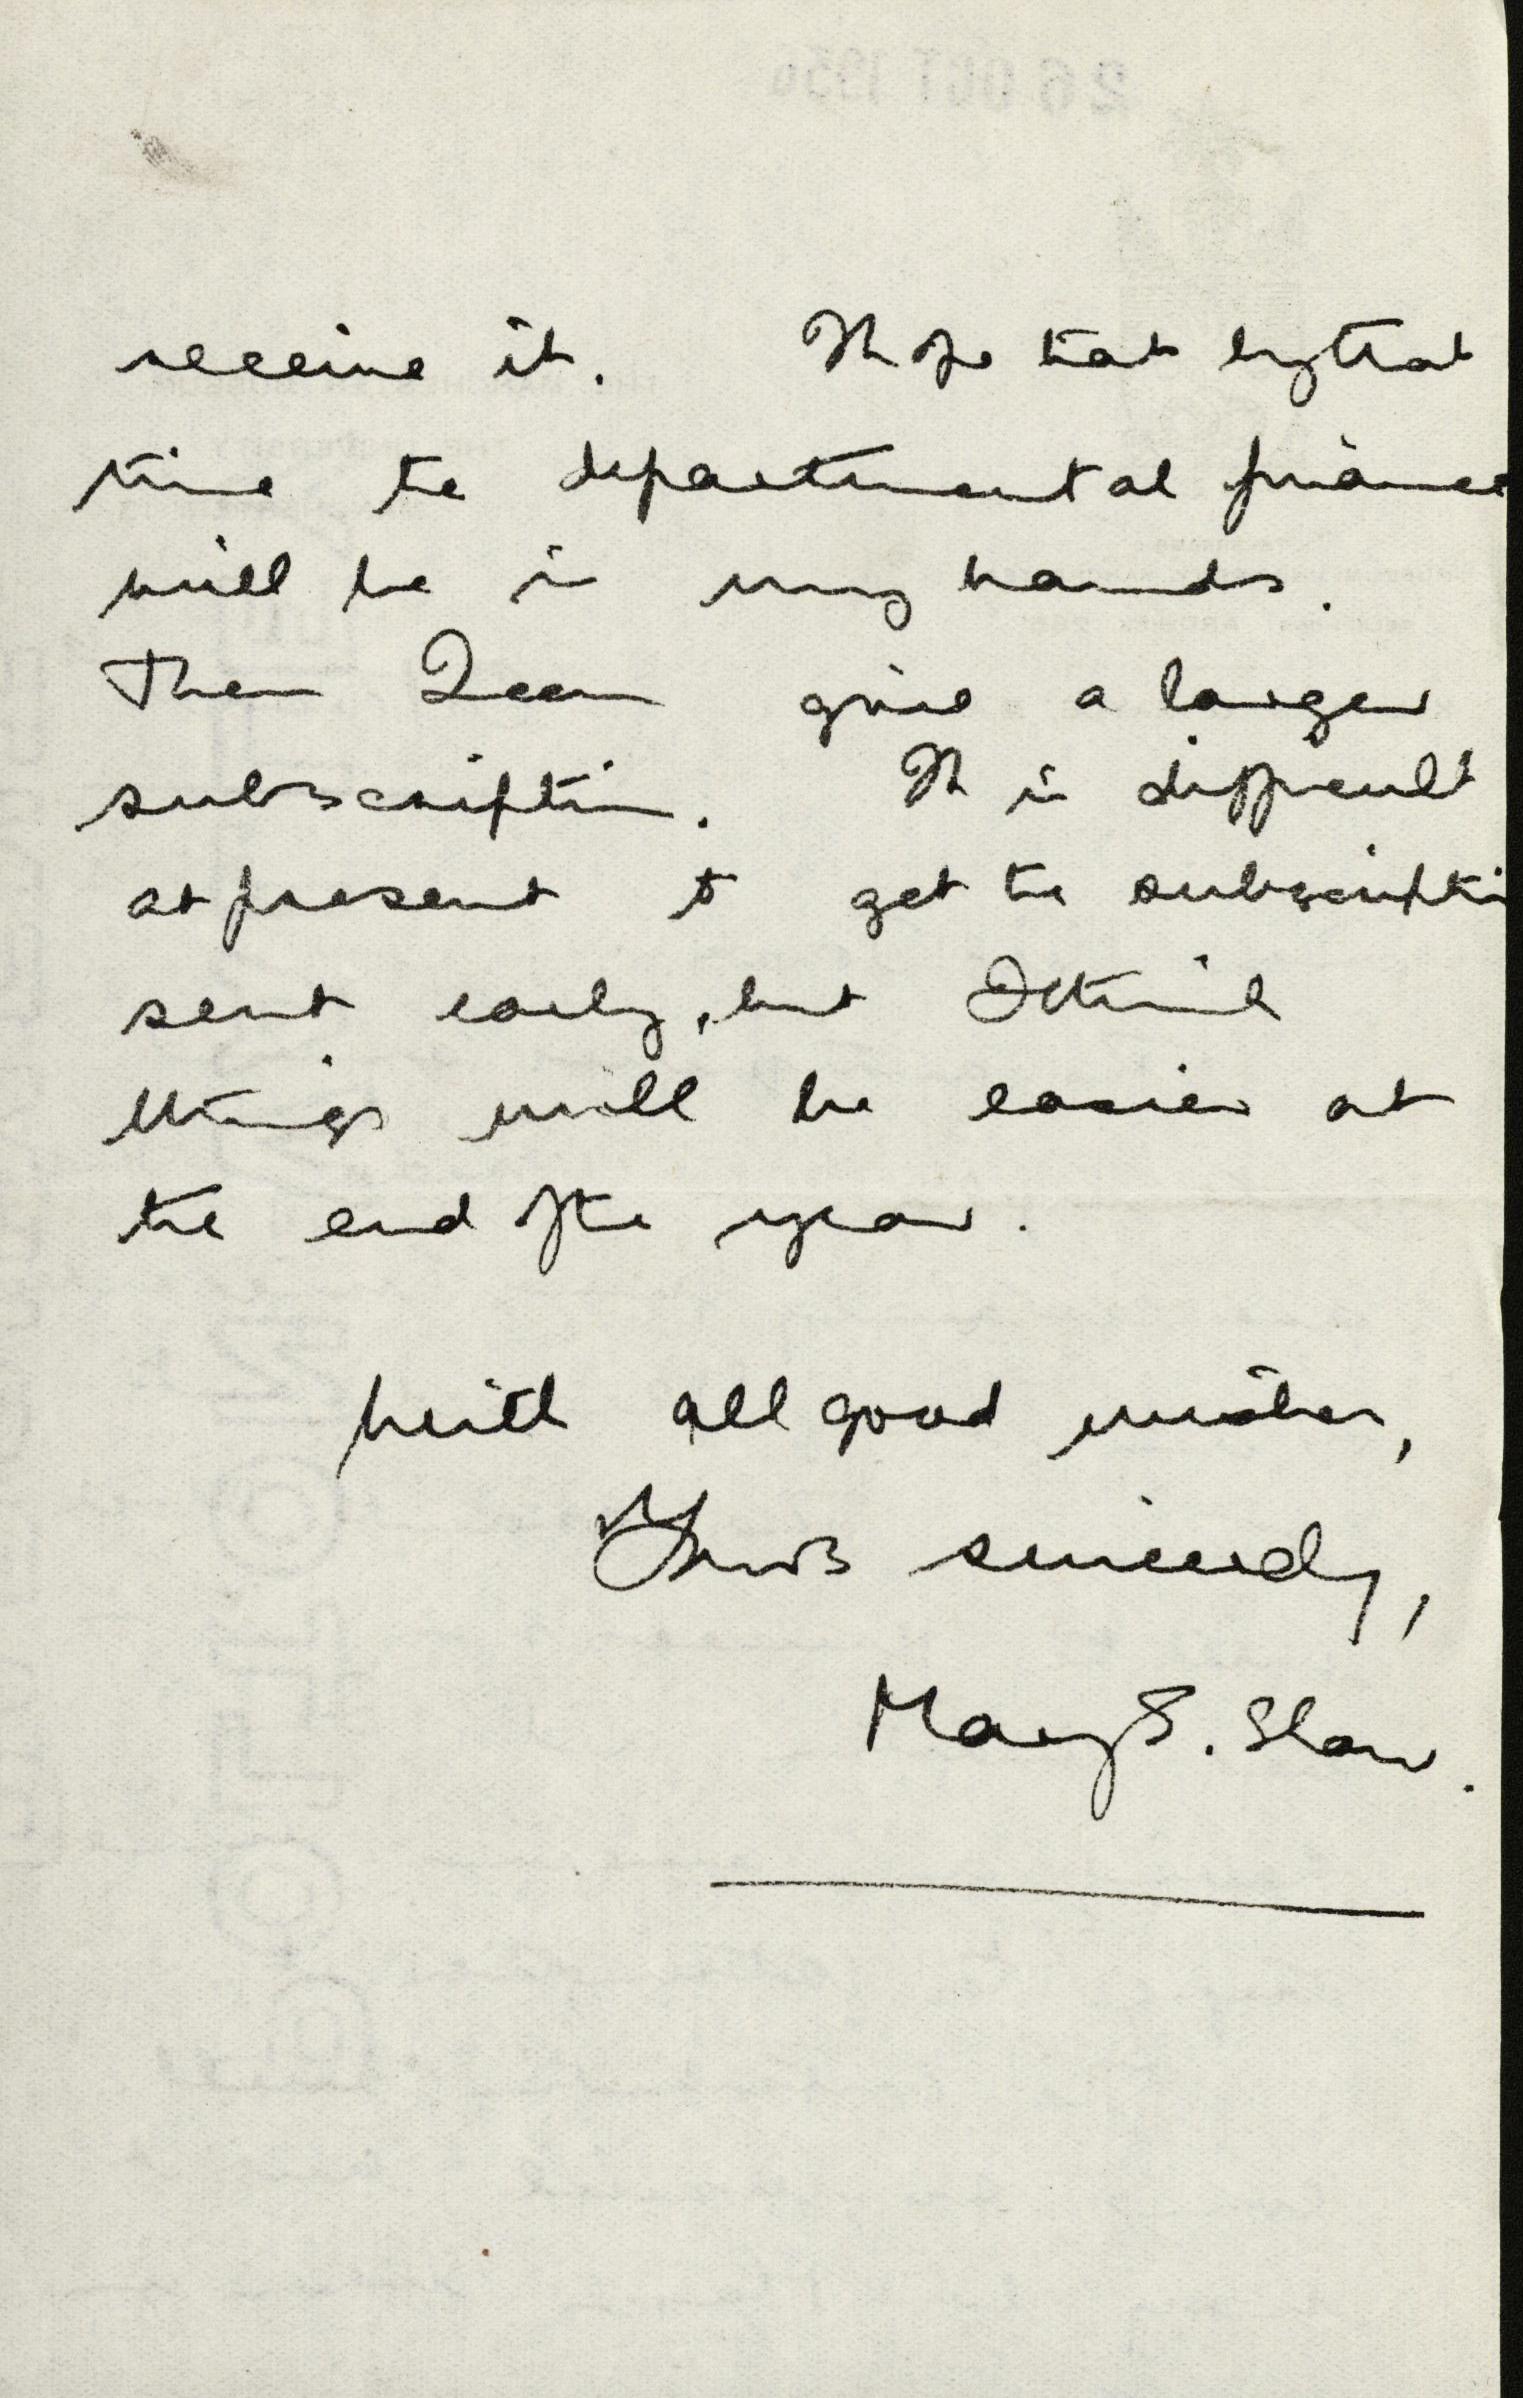 receive it. I hope that by that
time the departmental finances
will be in my hands.
Then I can give a larger
subscription. It is difficult
at present to get the subscripti
sent early, but I think
things will be easier at
the end of the year.
With all good wishes,
Yours sincerely,
Mary S. Shaw.